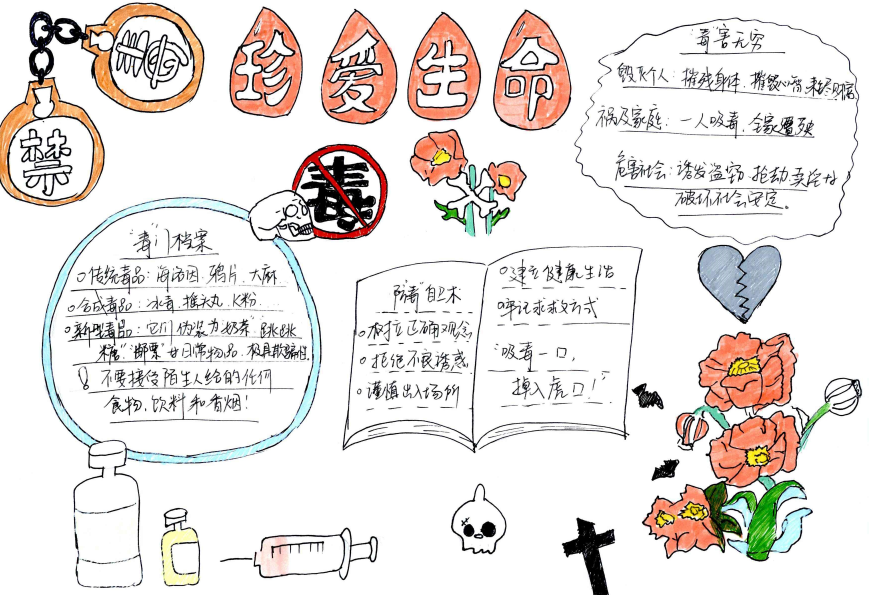 禁
珍爱生命
毒
“毒”害无穷
毁灭个人：摧残身体，摧毁心智，耗尽财富
祸及家庭：一人吸毒，全家遭殃
危害社会：诱发盗窃、抢劫
破坏社会安定。
“毒”门档案
传统毒品：海洛因、鸦片、大麻
合成毒品：冰毒、摇头丸、K粉
新型毒品：它们伪装为“奶茶”“跳跳
糖”“邮票”等日常物品，极具欺骗性
！不要接受陌生人给的任何
食物、饮料和香烟！
“防毒”自卫术
树立正确观念
拒绝不良诱惑
谨慎出入场所
建立健康生活
牢记求救方式
“吸毒一口，
掉入虎口！”